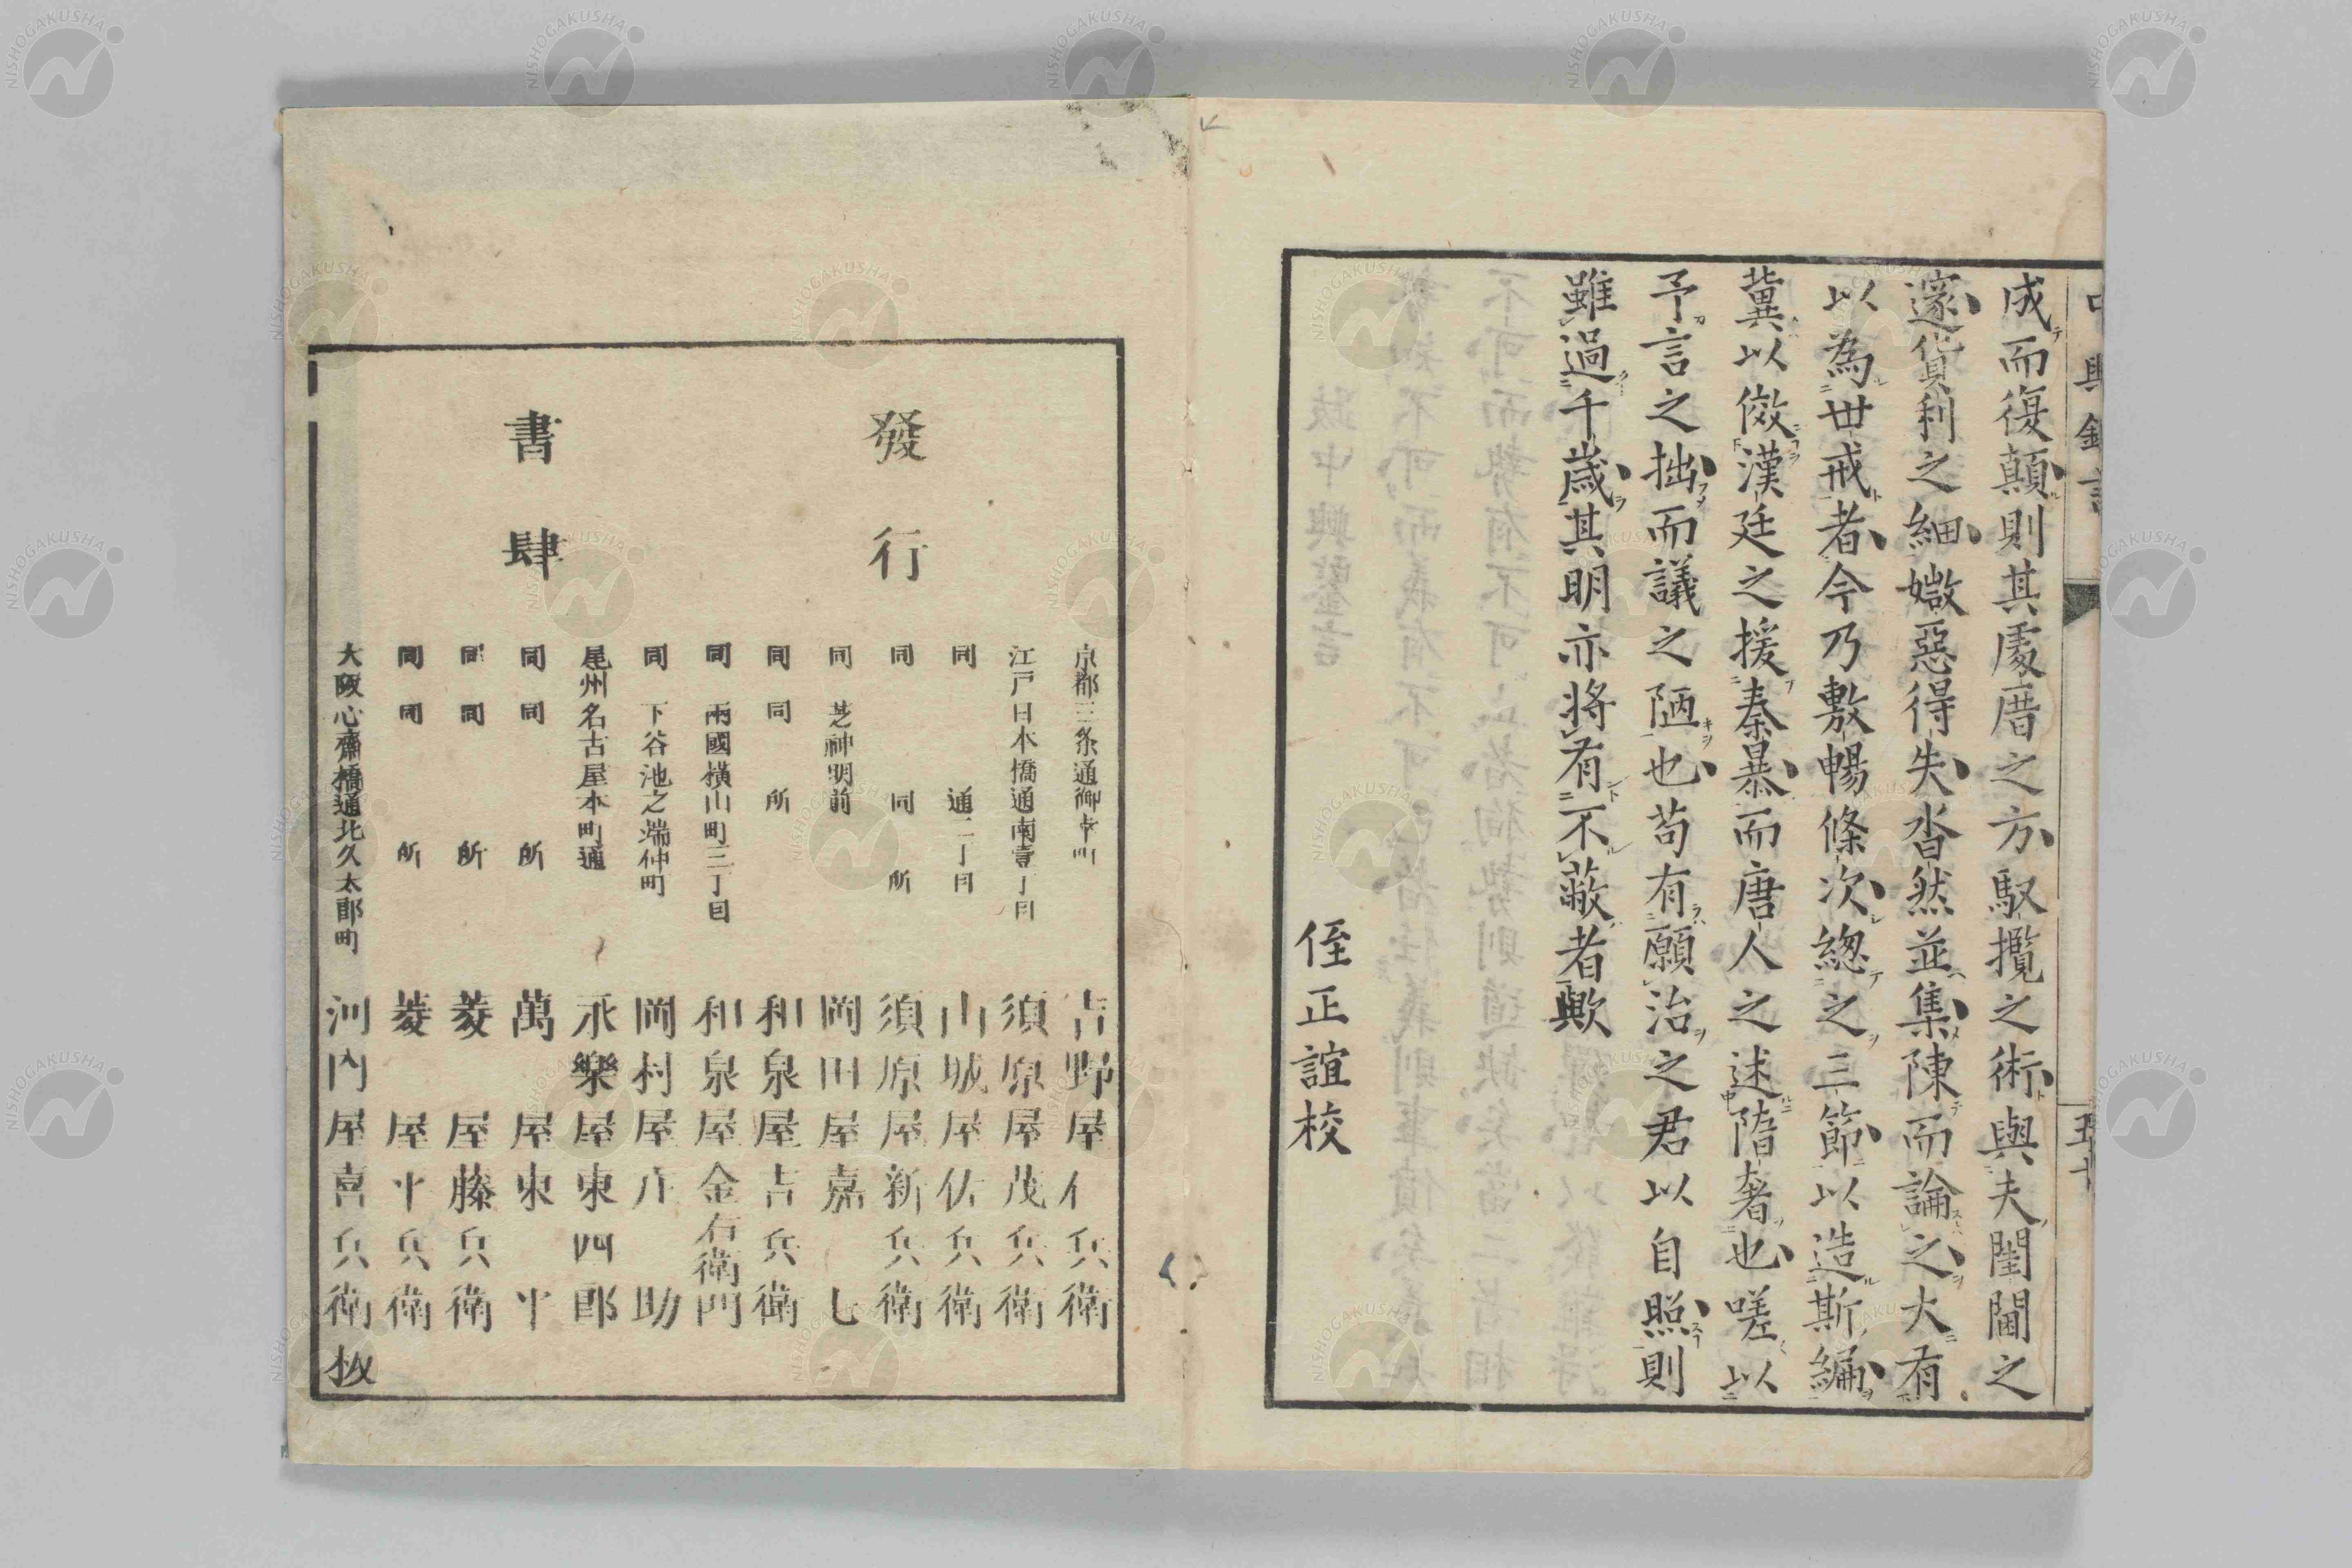 成而復顛則其處厝之方馭攬之術與夫闈闥之
邃貨利之細媺惡得失沓然並集陳而論之大有
以為丗戒者今乃敷暢條次總之三節以造斯編
冀以傚漢廷之援秦暴而唐人之述隋奢也嗟以
予言之拙而議之陋也苟有願治之君以自照則
雖過千歲其明亦將有不蔽者歟
侄正誼校
五十
發行
書肆
京都三条通御幸町 吉野屋仁兵衛
江戸日本橋通南壹丁目 須原屋茂兵衛
同 通二丁目 山城屋佐兵衛
同 同所 須原屋新兵衛
同 芝神明前 岡田屋嘉七
同 同所 和泉屋吉兵衛
同 兩國橫山町三丁目 和泉屋金右衛門
同 下谷池之端仲町 岡村屋庄助
尾州名古屋本町通 永樂屋東四郎
同 同所 萬屋東平
同 同所 菱屋藤兵衛
同 同所 菱屋平兵衛
大阪心齋橋通北久太郎町 河内屋喜兵衛板
NISHOGAKUSHA